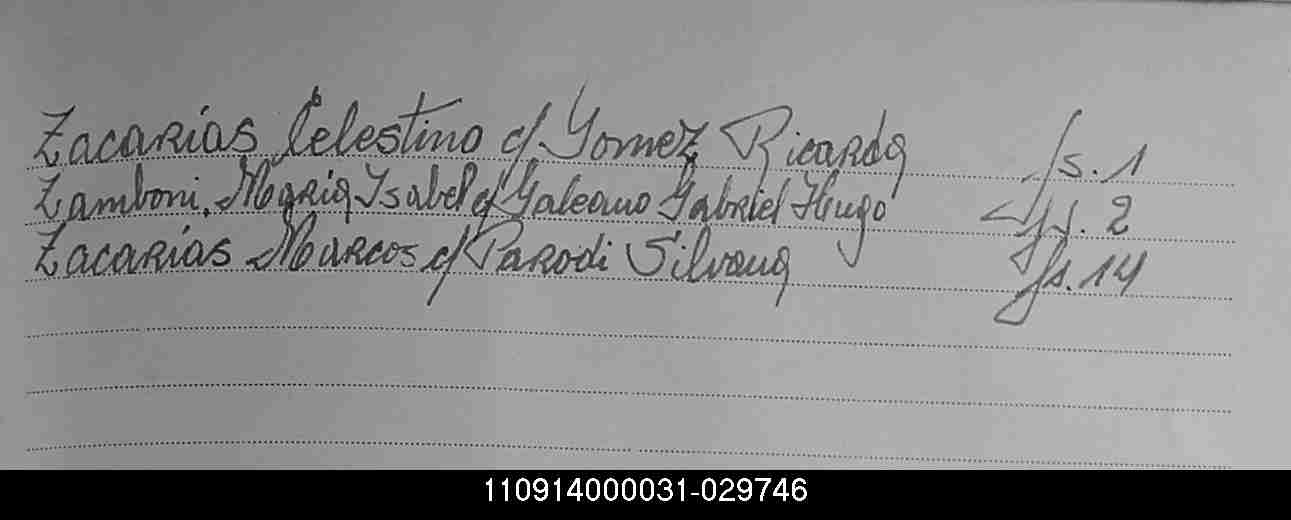 Zacarías Celestino c/ Gomez Ricarda fs. 1
Zamboni, María Isabel c/ Galeano Gabriel Hugo fs. 2
Zacarías Marcos c/ Parodi Silvana fs. 14
110914000031-029746